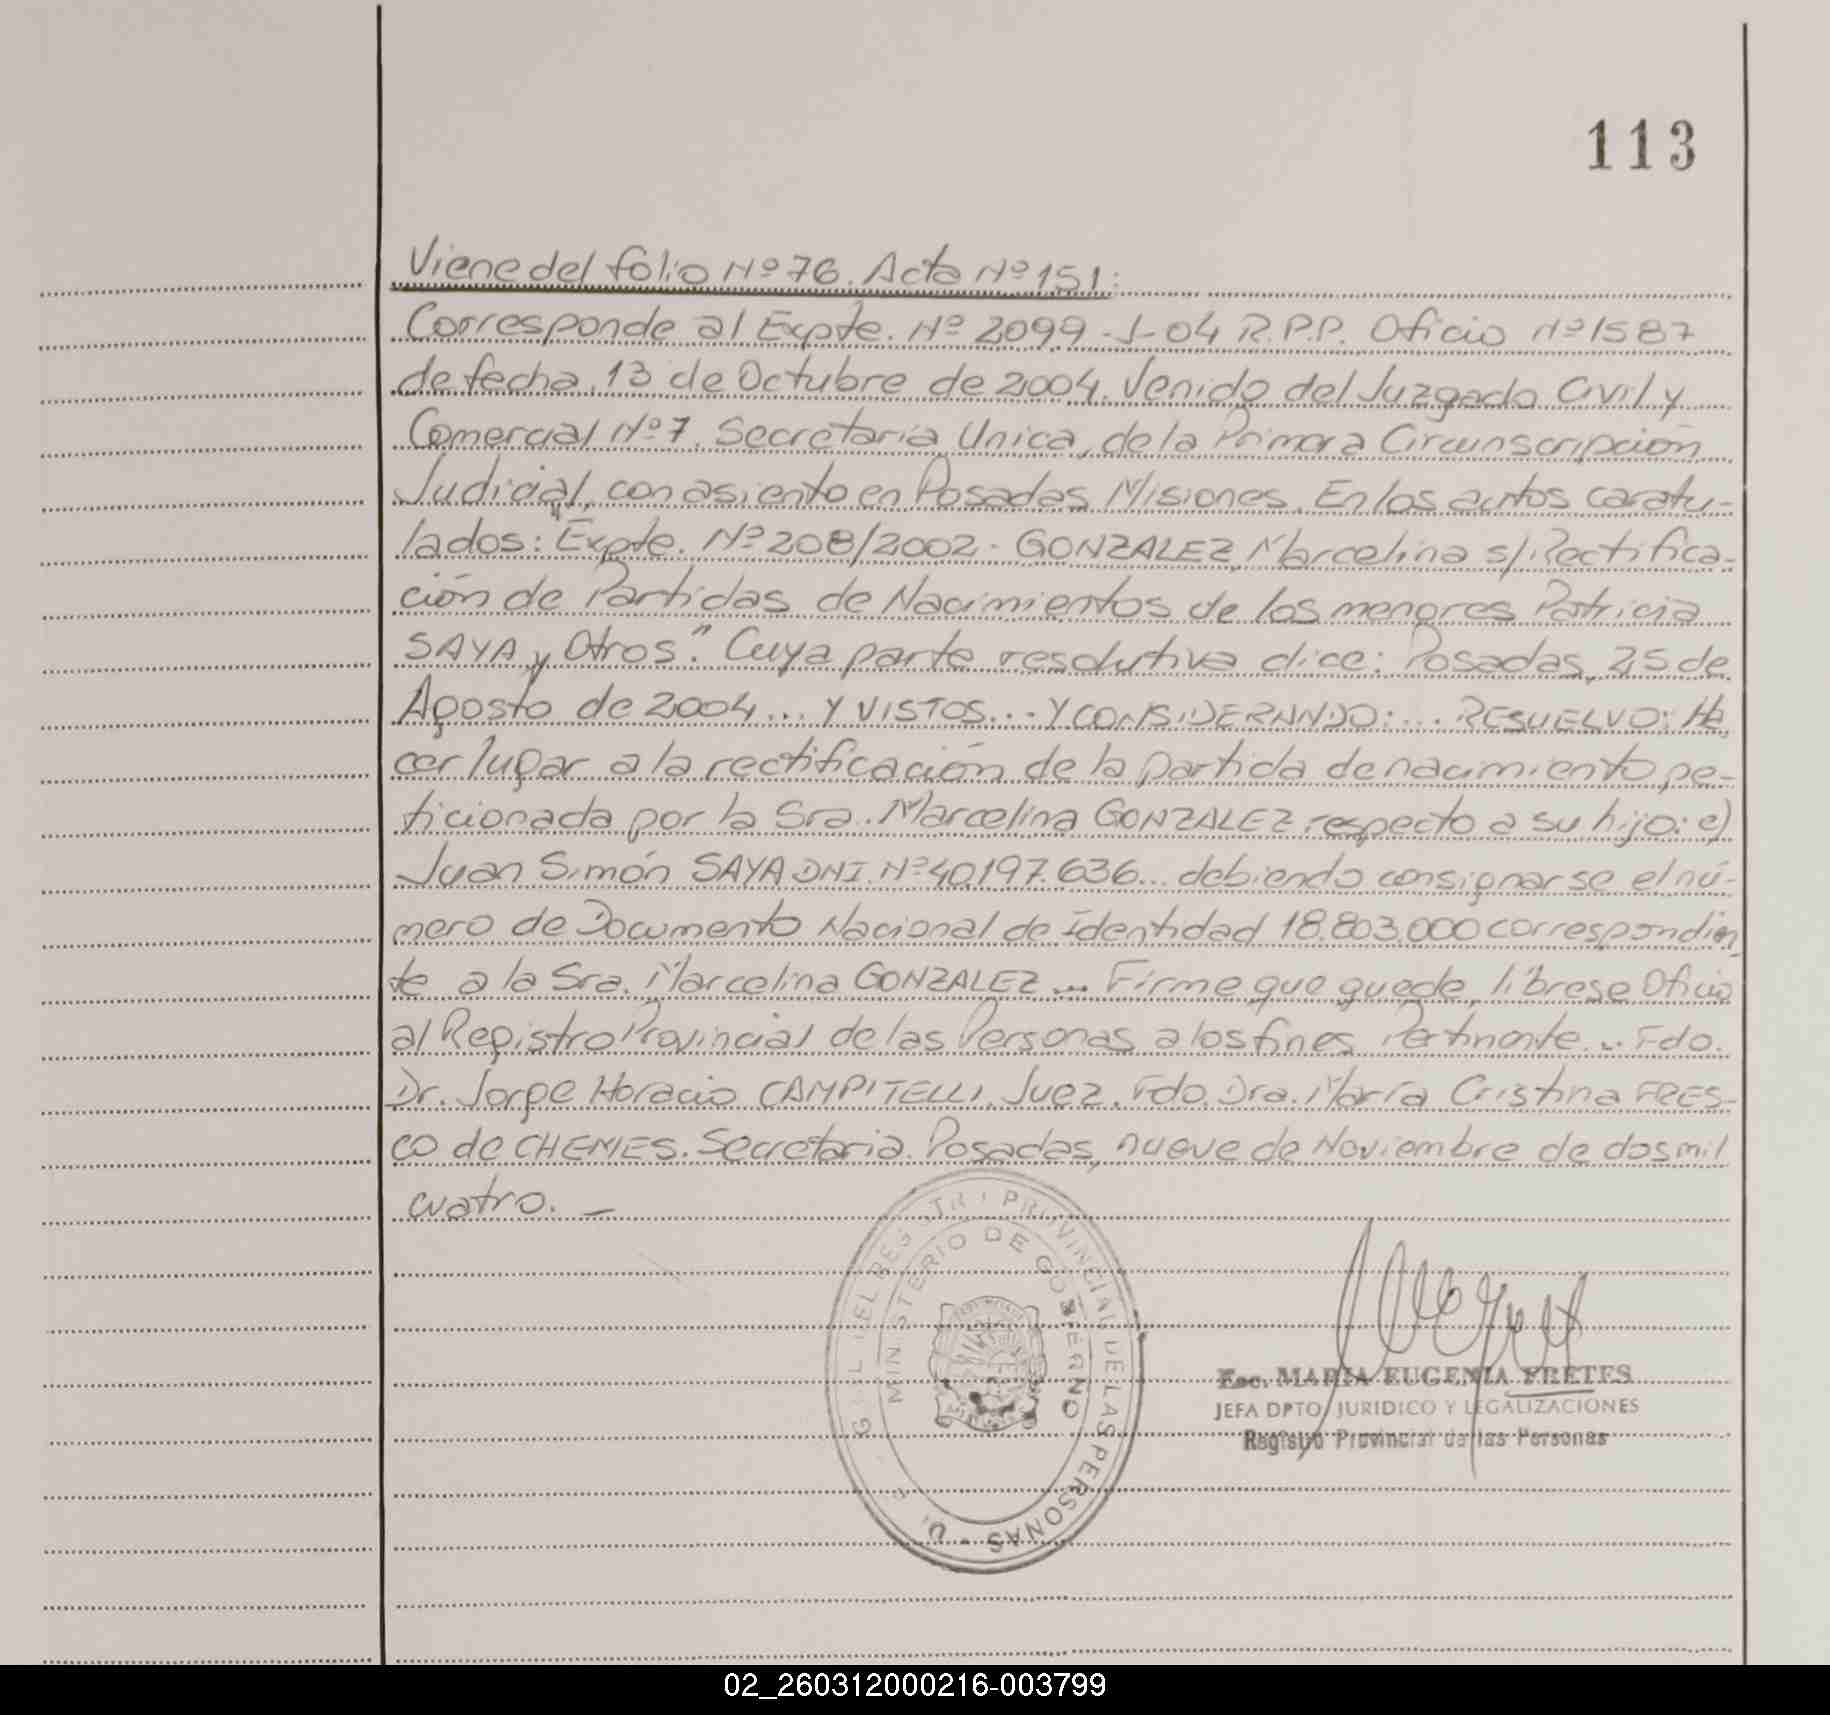 113
Viene del folio Nº 76. Acta Nº 151:
Corresponde al Expte. Nº 2099-J-04 R.P.P. Oficio Nº 1587
de fecha 13 de Octubre de 2004. Venido del Juzgado Civil y
Comercial Nº 7. Secretaría Unica, de la Primera Circunscripción
Judicial, con asiento en Posadas Misiones. En los autos caratu-
lados: "Expte. Nº 208/2002 - GONZALEZ, Marcelina s/Rectifica-
ción de Partidas de Nacimientos de los menores Patricia
SAYA y Otros". Cuya parte resolutiva dice: Posadas, 25 de
Agosto de 2004... Y VISTOS... Y CONSIDERANDO:... RESUELVO: Ha
cer lugar a la rectificación de la partida de nacimiento pe-
ticionada por la Sra. Marcelina GONZALEZ respecto a su hijo: e)
Juan Simón SAYA DNI. Nº 40.197.636... debiendo consignarse el nú-
mero de Documento Nacional de Identidad 18.803.000 correspondien
te a la Sra. Marcelina GONZALEZ... Firme que quede, líbrese Oficio
al Registro Provincial de las Personas a los fines Pertinente... Fdo.
Dr. Jorge Horacio CAMPITELLI. Juez. Fdo. Dra. María Cristina FRES-
CO de CHEMES. Secretaria. Posadas, nueve de Noviembre de dos mil
cuatro. —
PROVINCIAL DE LAS PERSONAS
MINISTERIO DE GOBIERNO
Esc. MARIA EUGENIA FRETES
JEFA DPTO. JURIDICO Y LEGALIZACIONES
Registro Provincial de las Personas
02_260312000216-003799